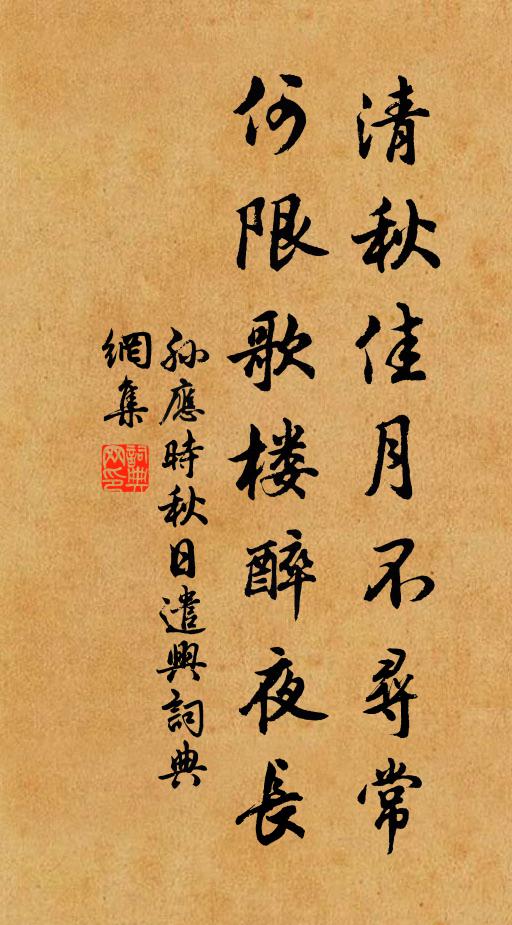 清秋佳月不尋常
何限歌楼醉夜長
孫應時秋日遣興詞典
網集
詞典
网印